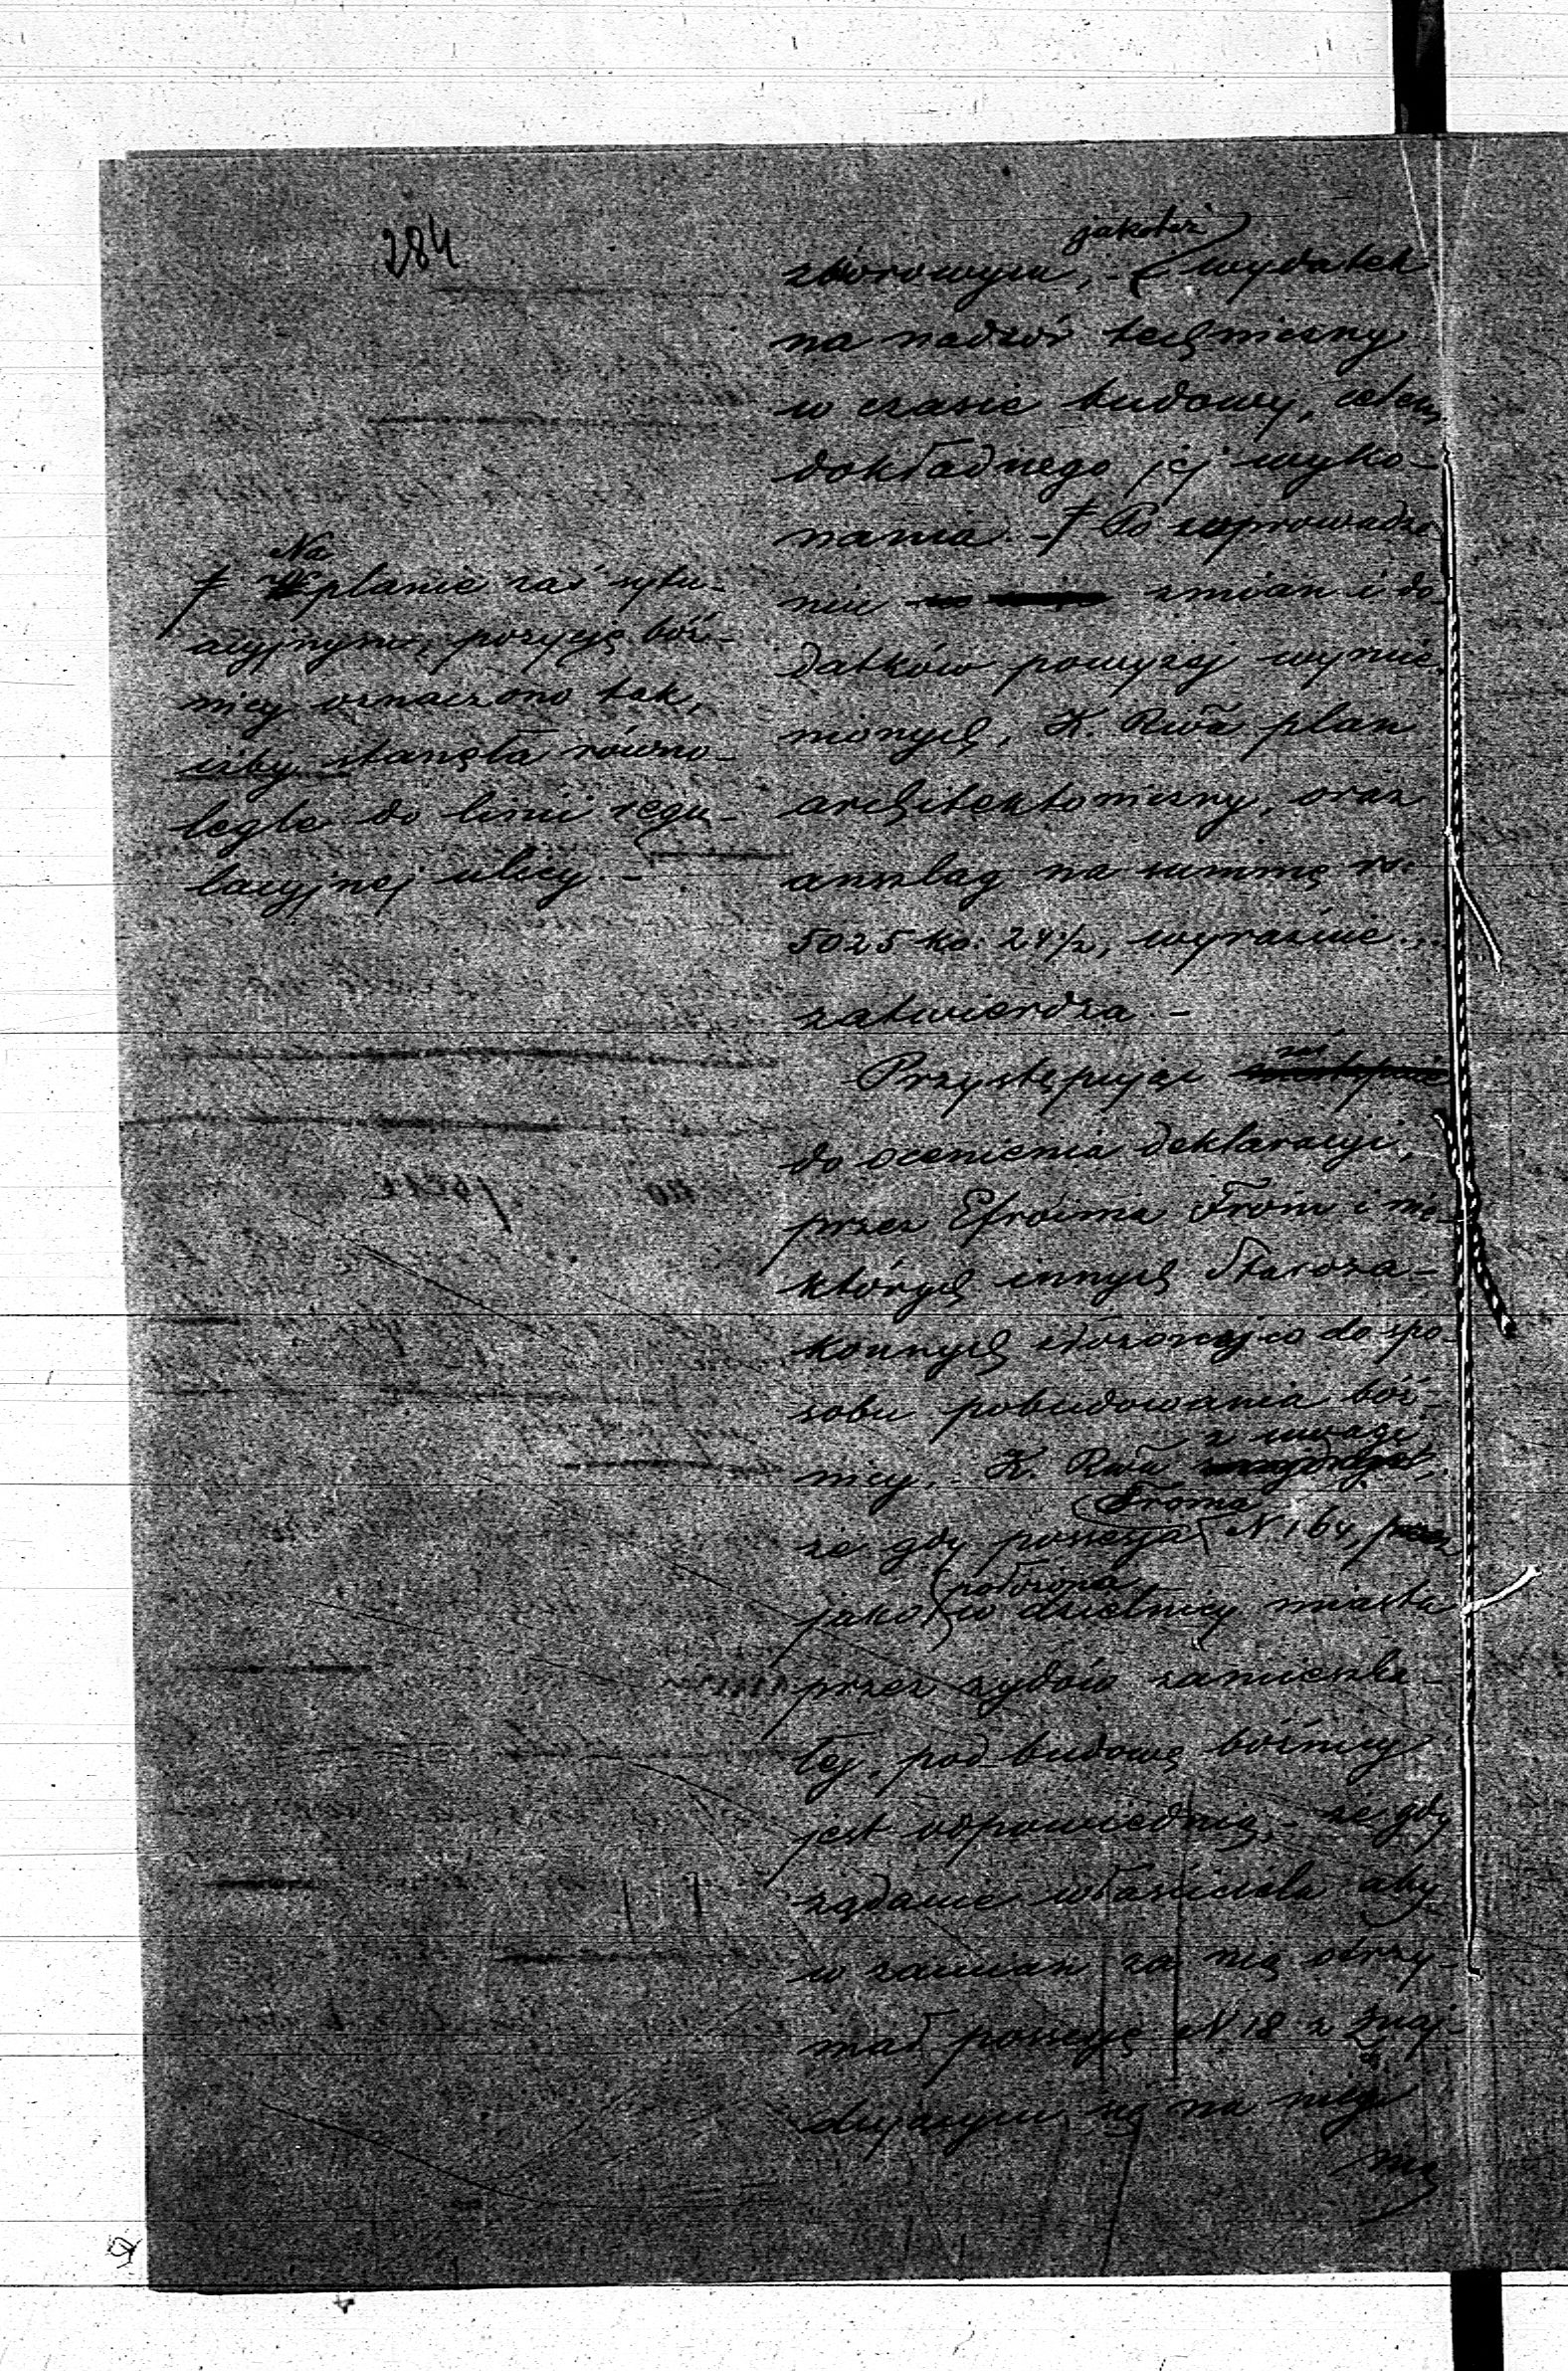 284
jakoteż
zborowym, - wydatek
na nadzór techniczny
w czasie budowy, celem
dokładnego jej wyko-
nania. - † Po zaprowadze
niu zmian i do
datków powyżej wymie
nionych, K. Rwa plan
architektoniczny, oraz
anszlag na summę rs.
5025 ko: 24½, wyraźnie ...
zatwierdza. -
Przystępując zaś
do ocenienia deklaracyi,
przez Efroima From i nie-
których innych Staroza-
konnych złożonej co do spo-
sobu pobudowania bóż-
nicy. - K. Rwa z uwagi
że gdy possesja Froma N 164,
jako położona w dzielnicy miasta
przez żydów zamieszka-
łej, pod budowę bóżnicy
jest odpowiednią, - że gdy
żądanie właściciela aby
w zamian za nią otrzy-
mał possesję N 18 z znaj-
dującym się na niej
Na
† planie zaś sytu-
acyjnym, pozycję bóż-
nicy oznaczono tak,
iżby stanęła równo-
legle do linii regu-
lacyjnej ulicy. -